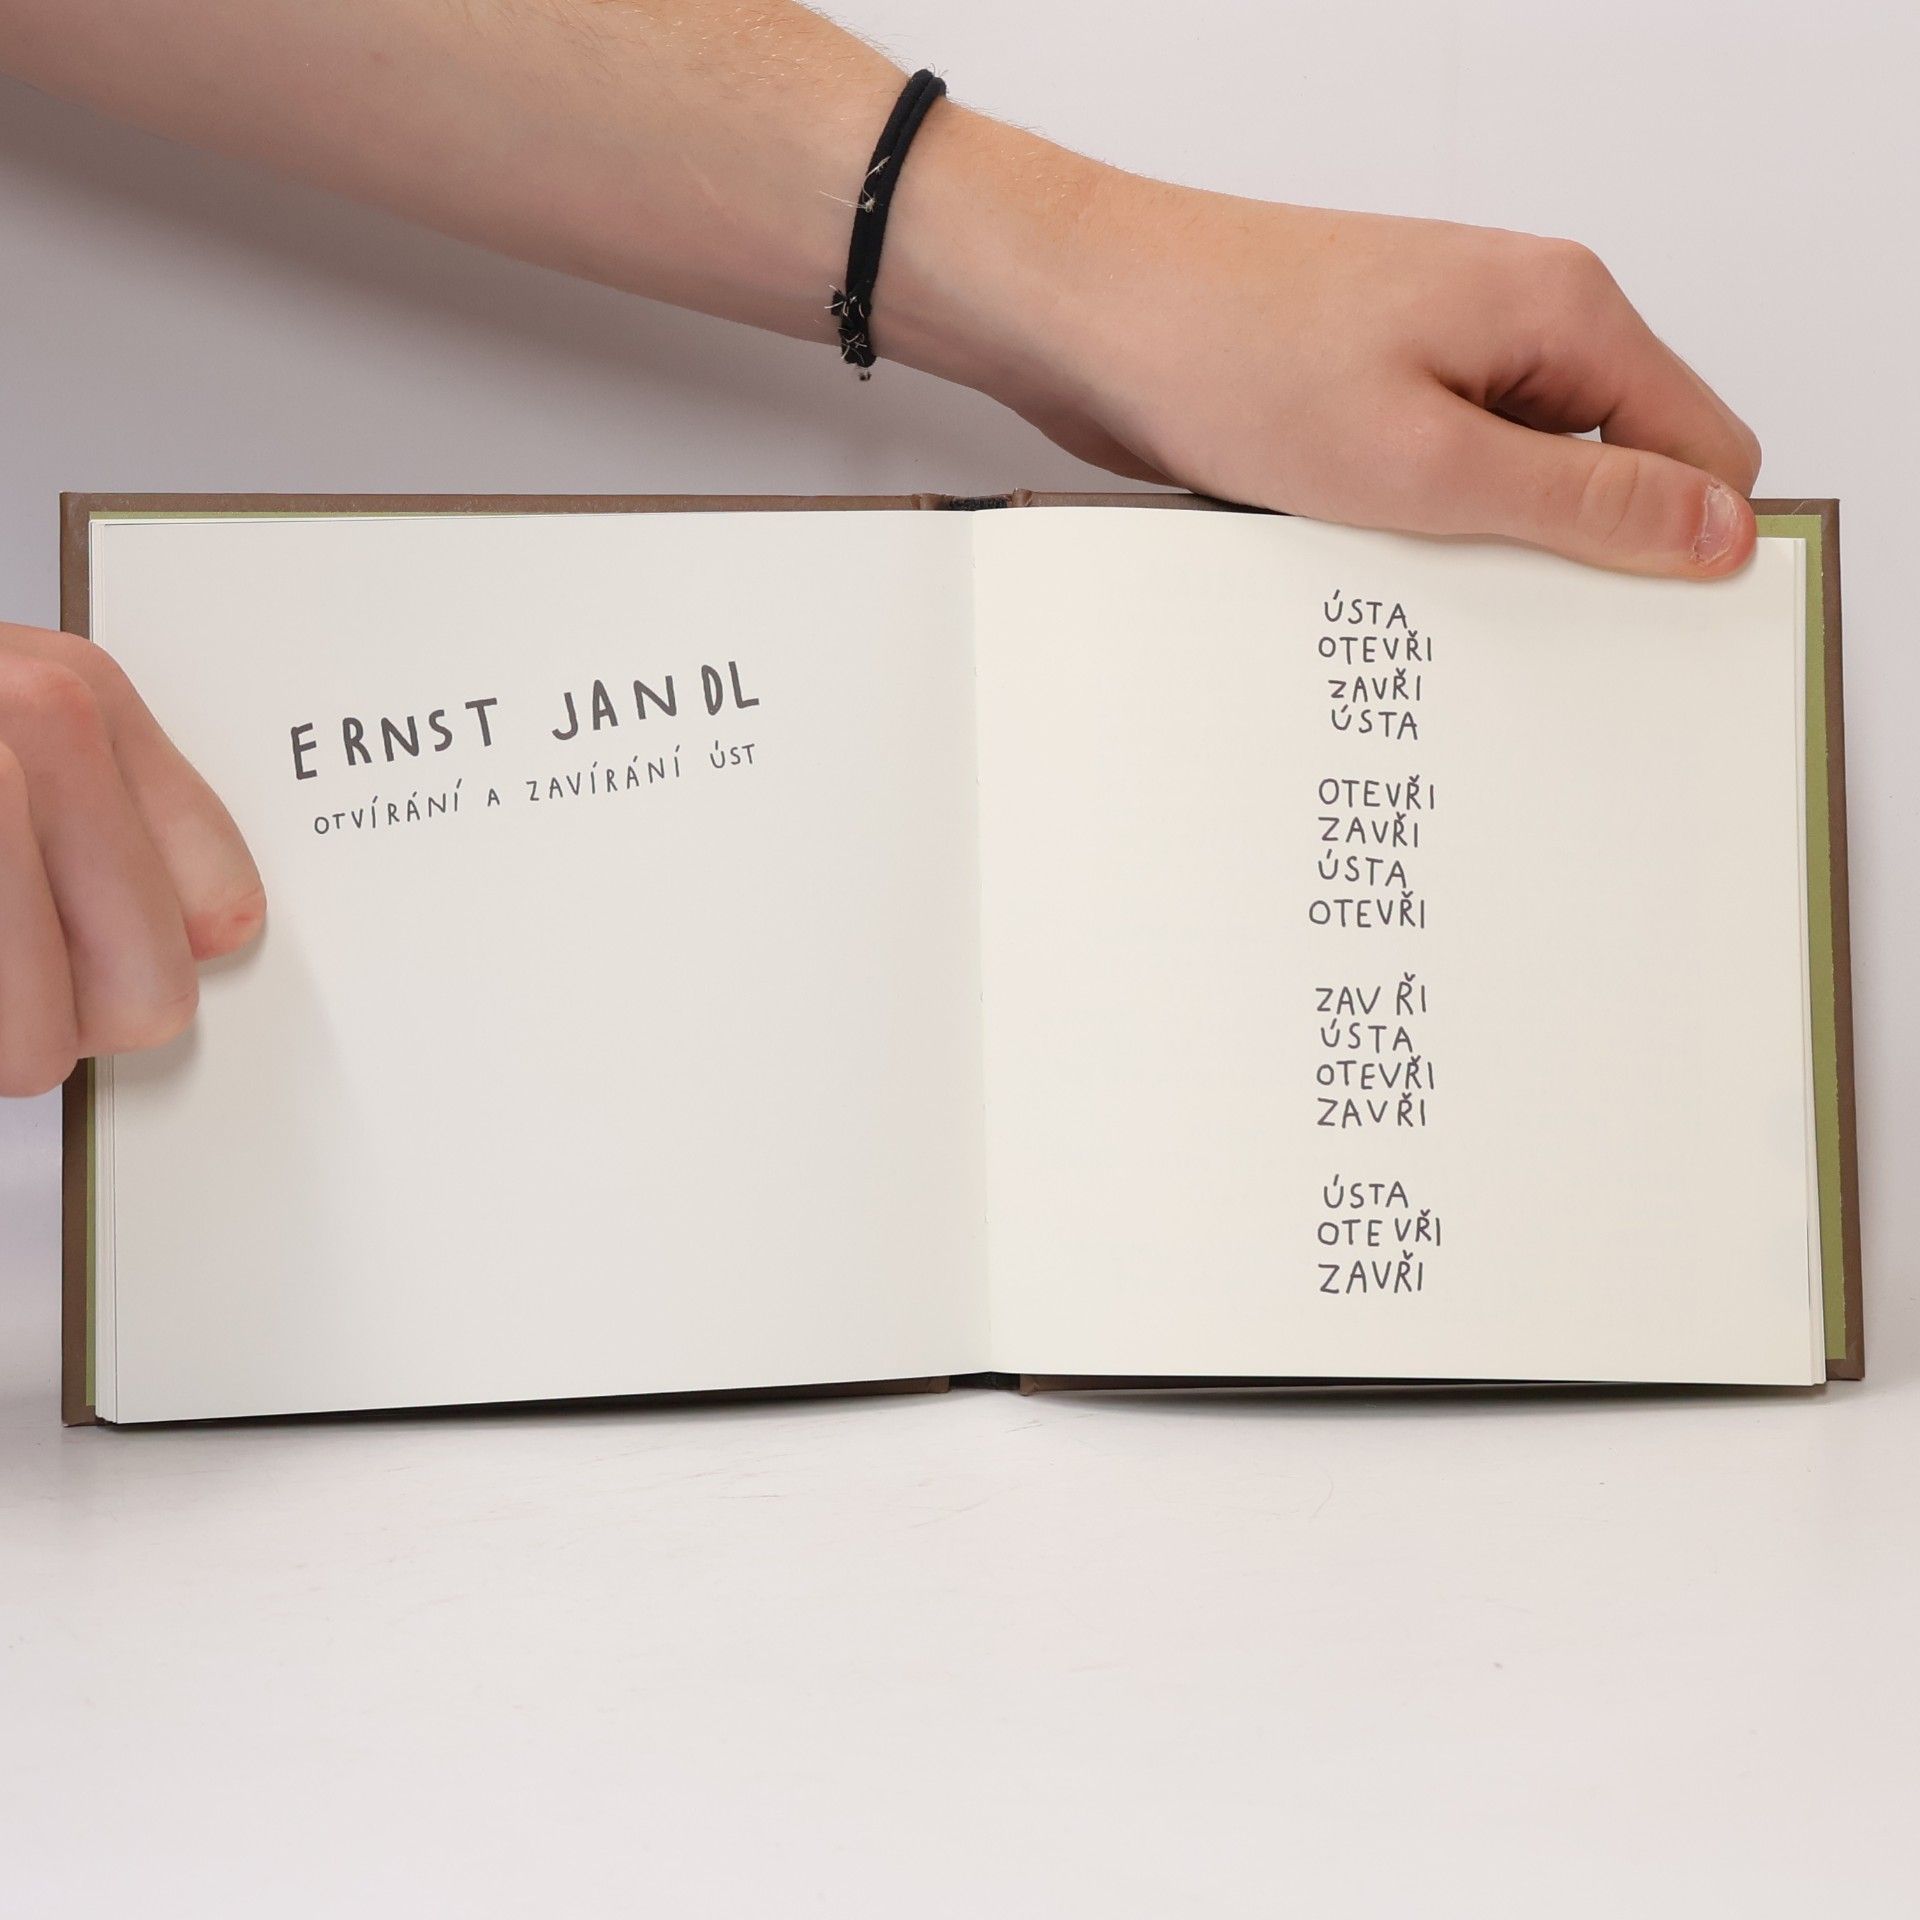 ERNST JANDL
OTVÍRÁNÍ A ZAVÍRÁNÍ ÚST
ÚSTA
OTEVŘI
ZAVŘI
ÚSTA
OTEVŘI
ZAVŘI
ÚSTA
OTEVŘI
ZAVŘI
ÚSTA
OTEVŘI
ZAVŘI
ÚSTA
OTEVŘI
ZAVŘI